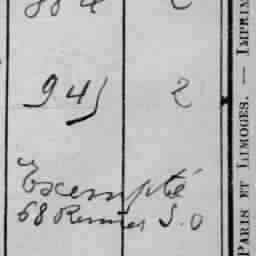 945 2
Exempté
68 Rennes S.O
PARIS ET LIMOGES. — IMPRIM